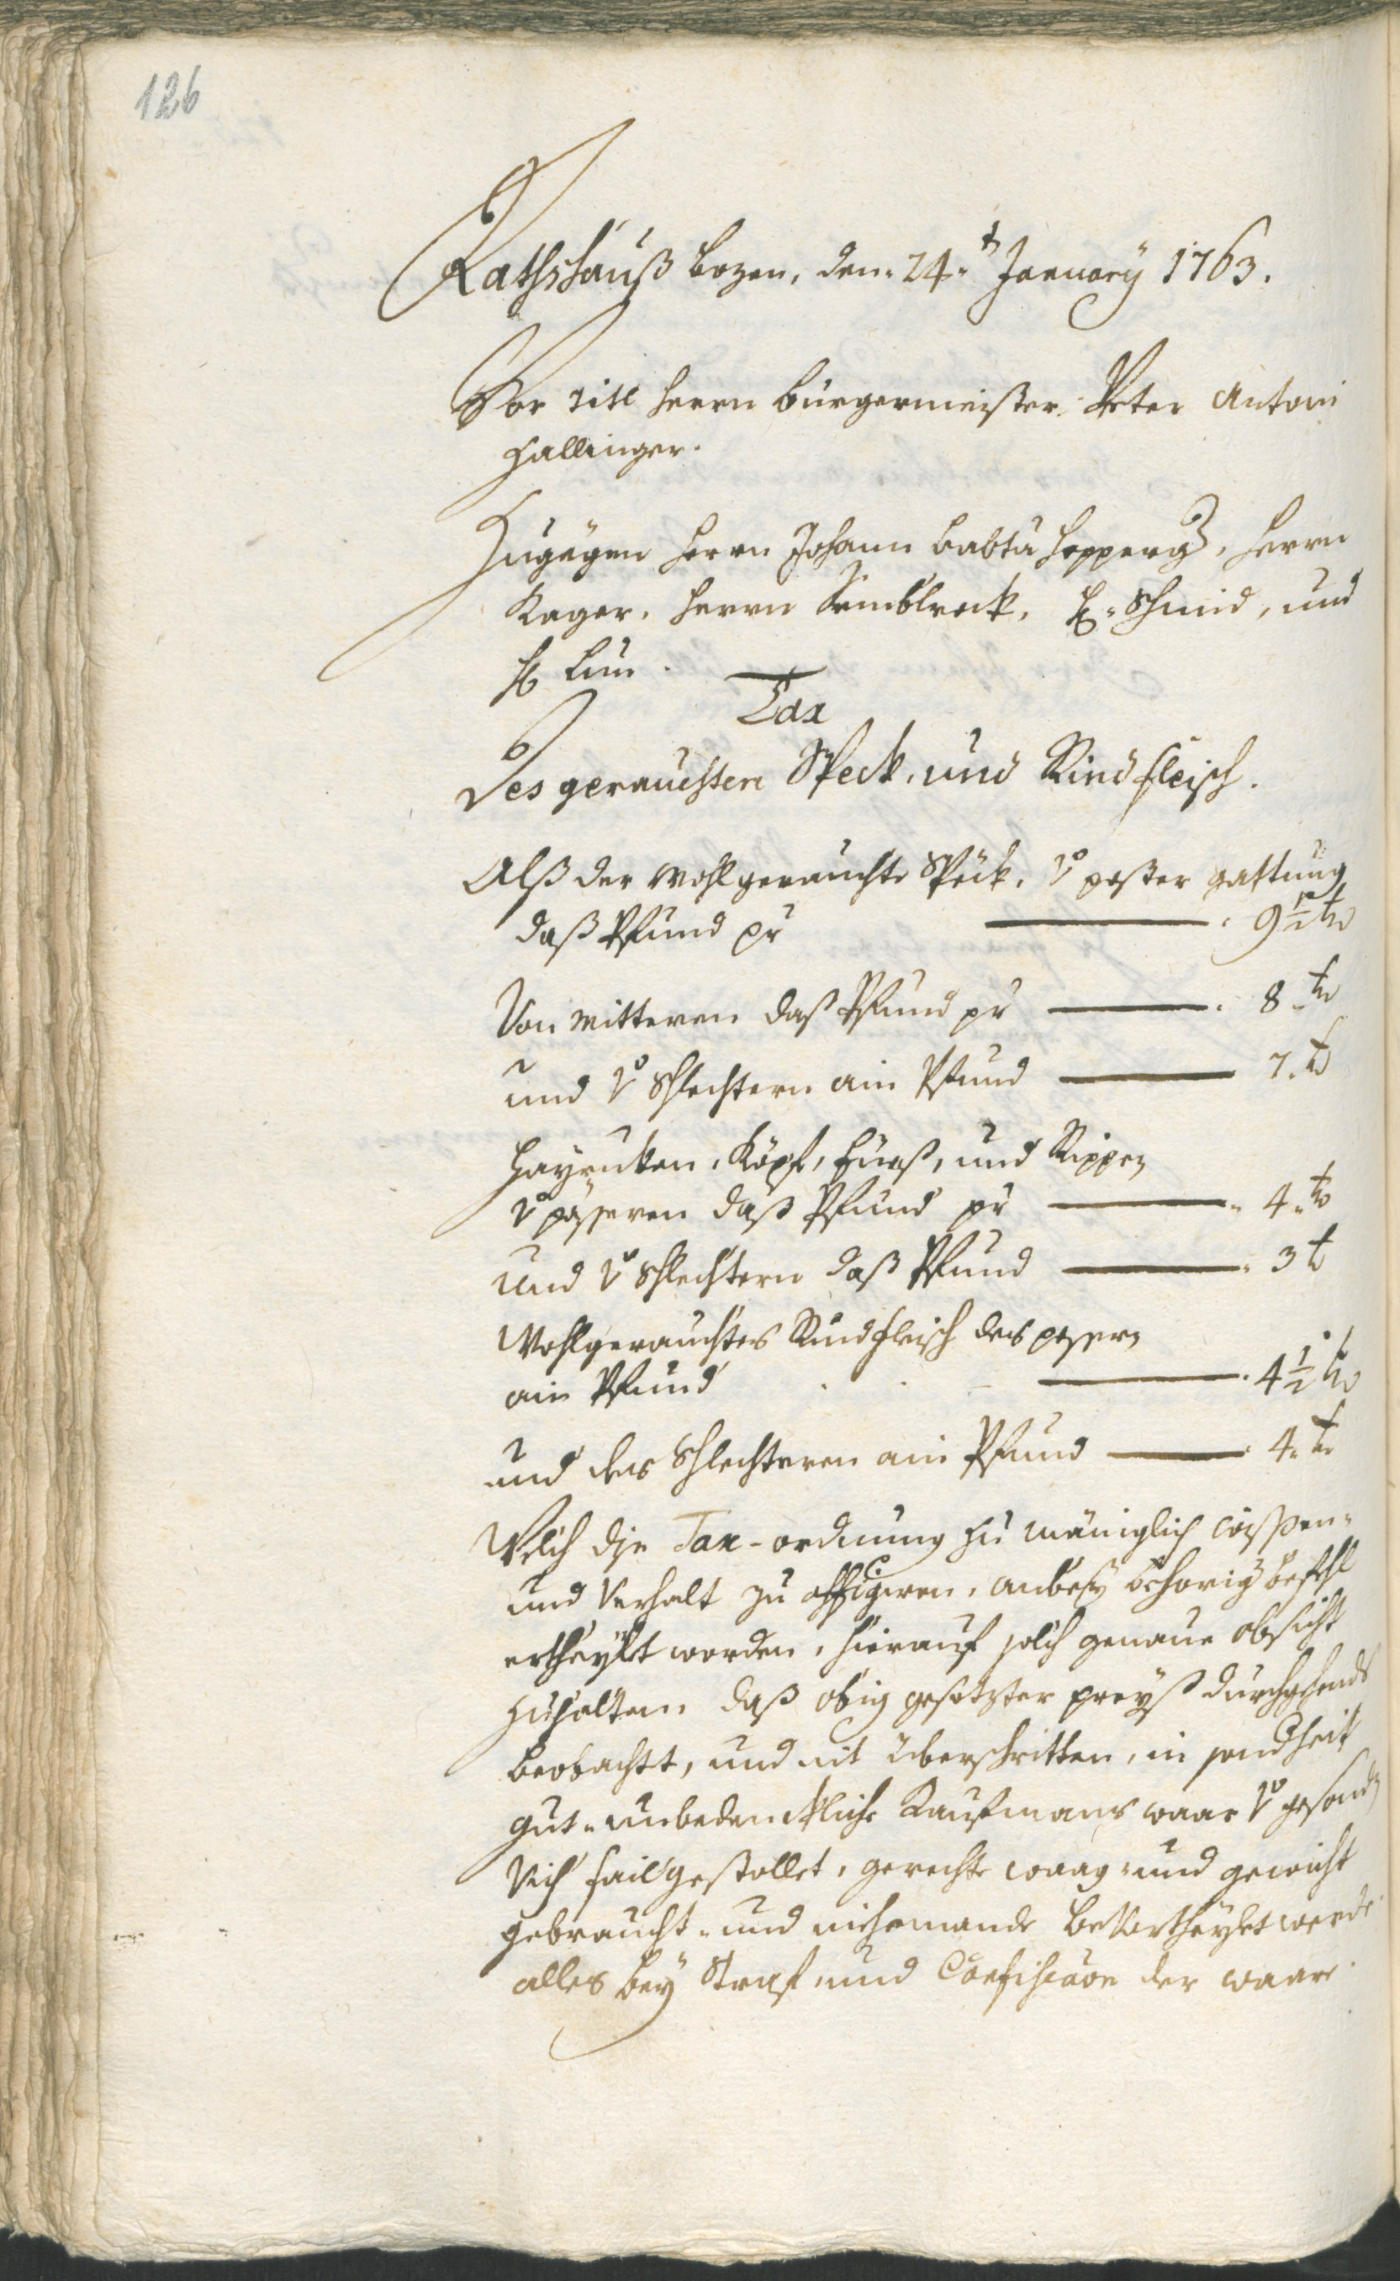 126
Rathshauß Bozen, den 24t January 1763.
Vor titl Herrn Bürgermeister Peter Antoni
Hallinger.
Zugegen Herrn Johann Babta Hepperg, Herrn
Kager, Herrn H: Schmid, und
H:
Tax
Des gerauchten Speck, und Rindfleisch.
Alß der wohlgerauchte Speck, vo pester gattung
daß Pfund pr 9 1/2 kr
Von mitteren daß Pfund pr 8 kr
und vo schlechtern ain Pfund 7 kr
Köpf, Füeß, und Rippen
vo pesseren daß Pfund pr 4 kr
und vo schlechtern daß Pfund 3 kr
Wohlgerauchtes Rindfleisch des pessern
ain Pfund 4 1/2 kr
und des schlechteren ain Pfund 4 kr
Welch dise Tax-ordnung zu mäniglich wissen-
und verhalt zu affigieren, anbey behörig befehl
ertheylt worden, hierauf solch genaue obsicht
zuhalten daß obig gesetzter preyß durchgehends
beobacht, und nit überschritten, in sonderheit
gut- unbedenckliche Kaufmans waar vo gesonden
Vich failgestellet, gerechte waag- und gewicht
gebraucht- und niehemande bevortheylet werde
alles bey Straf und Confiscaon der waare.